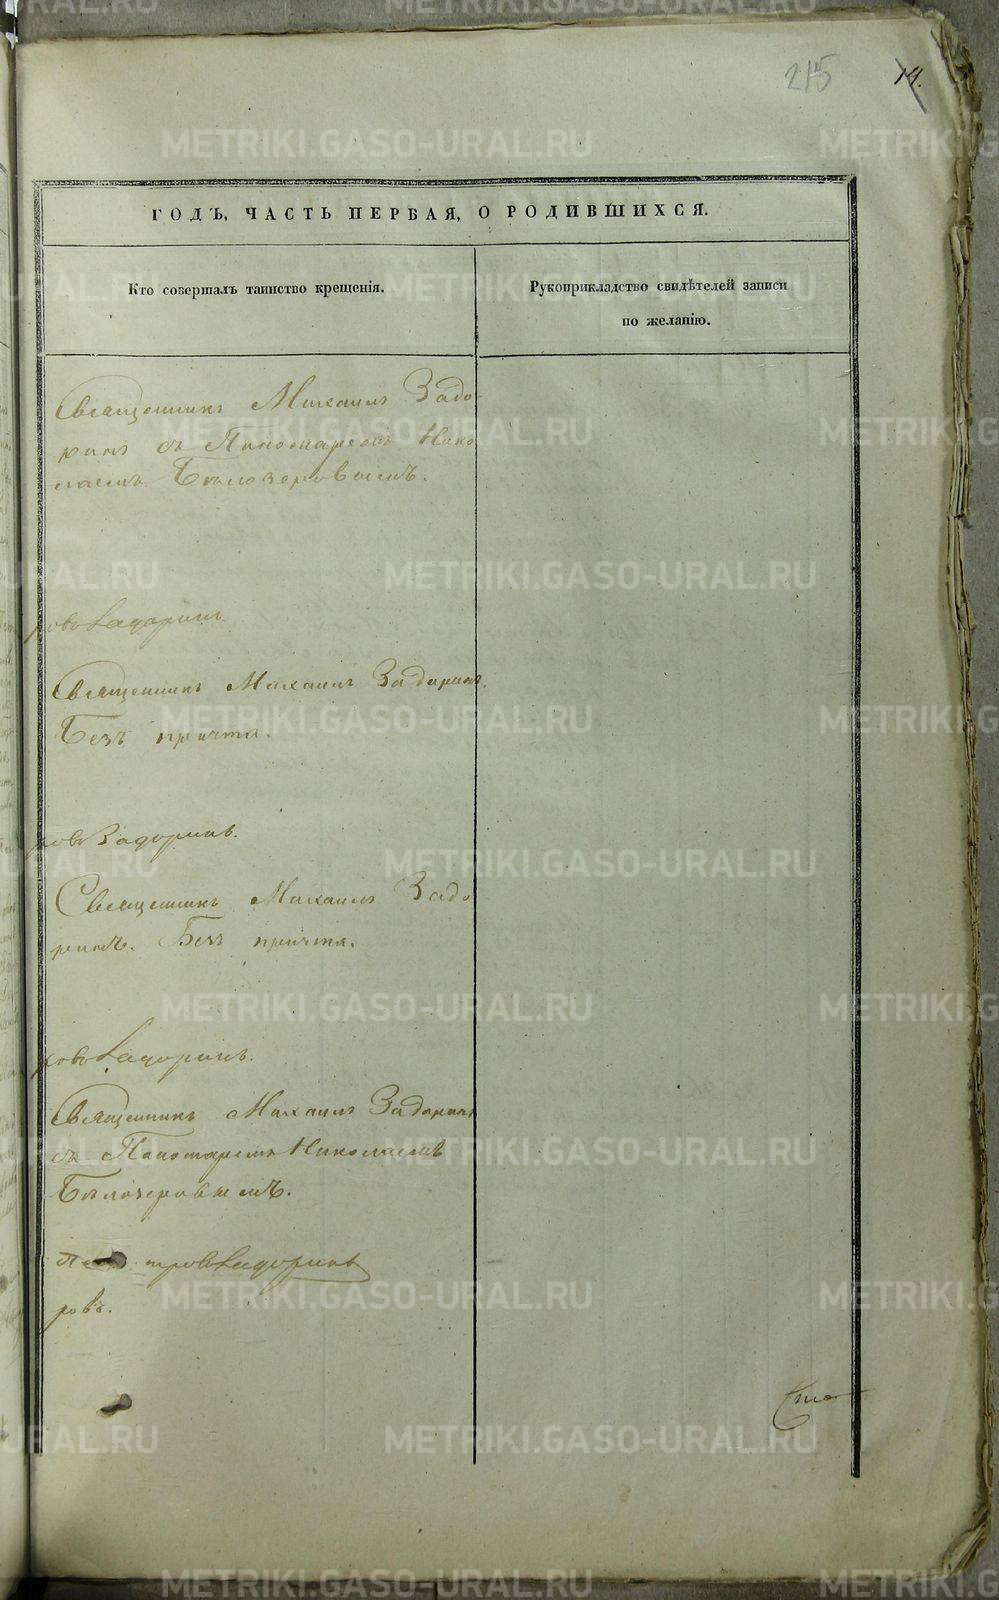 215
14.
ГОДЪ, ЧАСТЬ ПЕРВАЯ, О РОДИВШИХСЯ.
Кто совершалъ таинство крещенія.
Рукоприкладство свидѣтелей записи
по желанію.
Священникъ Михаилъ Задо-
ринъ съ Пономаремъ Нико
лаемъ Бѣлозеровымъ.
ровъ Задоринъ
Священникъ Михаилъ Задоринъ.
Безъ причта.
ровъ Задоринъ.
Священникъ Михаилъ Задо-
ринъ. Безъ причта.
ровъ Задоринъ.
Священникъ Михаилъ Задоринъ
съ Пономаремъ Николаемъ
Бѣлозеровымъ.
тровъ Задоринъ
ровъ.
Сто
METRIKI.GASO-URAL.RU